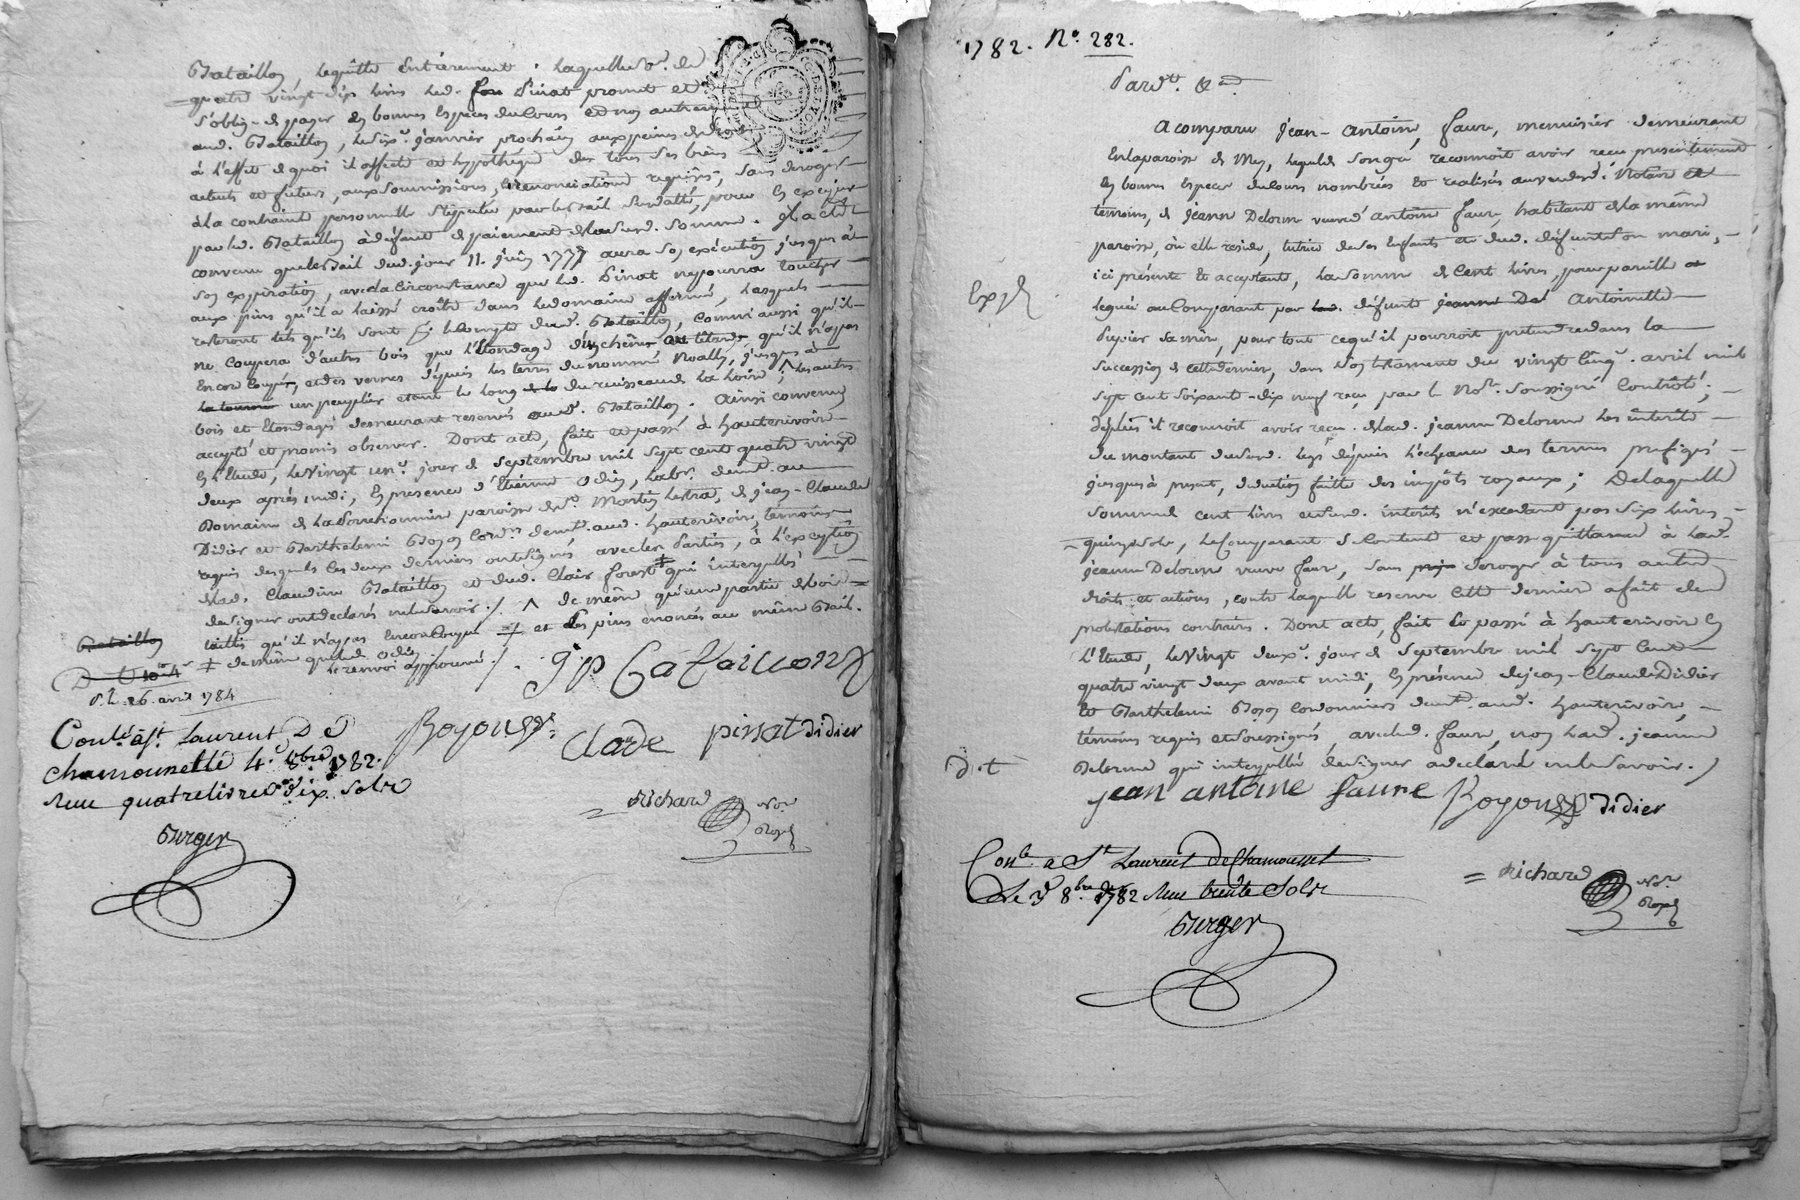 Bataillon, le quitte entierement; laquelle so.e de
quatre vingt dix livres led. Pinat promet et
s'oblige de payer en bonnes especes du cours et non autrement
aud. Bataillon, le six.e janvier prochain aux peines de droit
à l'effet de quoi il affecte et hypothéque des tous ses biens
actuels et futurs, aux soumissions, et renonciations requises, sans deroger
à la contrainte personnelle stipulée par le bail sur daté, pour en exciper
par led. Bataillon à défaut de paiement de lasusd. somme. Il a été
convenu que le bail dud. jour 11. juin 1777 aura son exécution jusques à
son expiration, avec la circonstance que led. Pinat ne pourra toucher
aux pins qu'il a laissé croître dans le domaine affermé, lesquels
resteront tels qu'ils sont p.r le compte dud. Bataillon, comme aussi qu'il
ne coupera d'autres bois que l'étondage des chênes qu'il n'a pas
encore coupé, et des vernes dépuis les terres du nommé Noally, jusques à
un peuplier etant le long du ruisseau de la Loire; ^ les autres
bois et étondages demeurant reservés aud. Bataillon. Ainsi convenu
accepté et promis observer. Dont acte, fait et passé à hauterivoire
en l'Etude, le vingt un.e jour de septembre mil sept cent quatre vingt
deux après midi, en presence d'Etienne Odin, lab.r demt. au
Domaine de la paroisse de st. Martin lestra, de jean-Claude
Didier et Barthelemi Boyon cord.rs demt. aud. hauterivoire, temoins
requis desquels les deux derniers ont signés avec les Parties, à l'exception
de lad. Claudine Bataillon et dud. Clair forest ‡ qui interpellés
de signer ont declarés ne le savoir. / ^ de même qu'une partie de bois
taillis qu'il n'a pas encore coupé ‡ et les pins énoncés au même Bail.
‡ de même que led. Odin
le renvoi approuvé /.
Bataillon
26. avril 1784
jp Bataillon
Boyon
Clade pinat didier
Conle. à st. Laurent De
chamousset le 4.e 8bre 1782.
Recu quatre livres dix sols
Burger
Richard Not.
Royal
1782. No. 282.
Pard.t &a.
A comparu Jean-Antoine faure, menuisier demeurant
en la paroisse de Mey, lequel de son gré reconnoit avoir recu presentement
en bonnes especes du cours nombrées et realisées au vu desd. Notaire et
témoins, de jeanne Delorme veuve d'antoine faure, habitant de la même
paroisse, où elle reside, tutrice de ses enfants et dud. défunt son mari,
ici présente et acceptant, la somme de cent livres, pour pareille
leguée au Comparant par défunte Antoinette
Dupier sa mère, pour tout ce qu'il pourroit pretendre dans la
succession de cette dernier, dans son testament du vingt cinq.e avril mil
sept cent soixante-dix neuf reçu par le No.re soussigné Controlé;
déplus il reconnoit avoir recu de lad. jeanne Delorme les intérêts
du montant dud. legs dépuis l'échéance des termes prefigés
jusques à present, déduction faite des impôts royaux; De laquelle
somme de cent livres et sud. intérêts n'excedant pas six livres
quinze sols, le Comparant se contente et passe quittance à lad.
jeanne Delorme veuve faure, sans deroger à tous autres
droits et actions, contre laquelle reserve cette dernier a fait de
protestations contraires. Dont acte, fait et passé à hauterivoire en
l'Etude, le vingt deux.e jour de septembre mil sept cent
quatre vingt deux avant midi, en présence de jean-Claude Didier
et Barthelemi Boyon cordonniers demt. aud. hauterivoire,
témoins requis et soussignés, avec led. faure, non lad. jeanne
Delorme qui interpellée de signer a declaré ne le savoir. /
Exp.
d.t
jean antoine faure Boyon didier
Conle. a St. Laurent de Chamousset
Le 3 8bre 1782 recu trente sols
Burger
Richard Not.
Royal